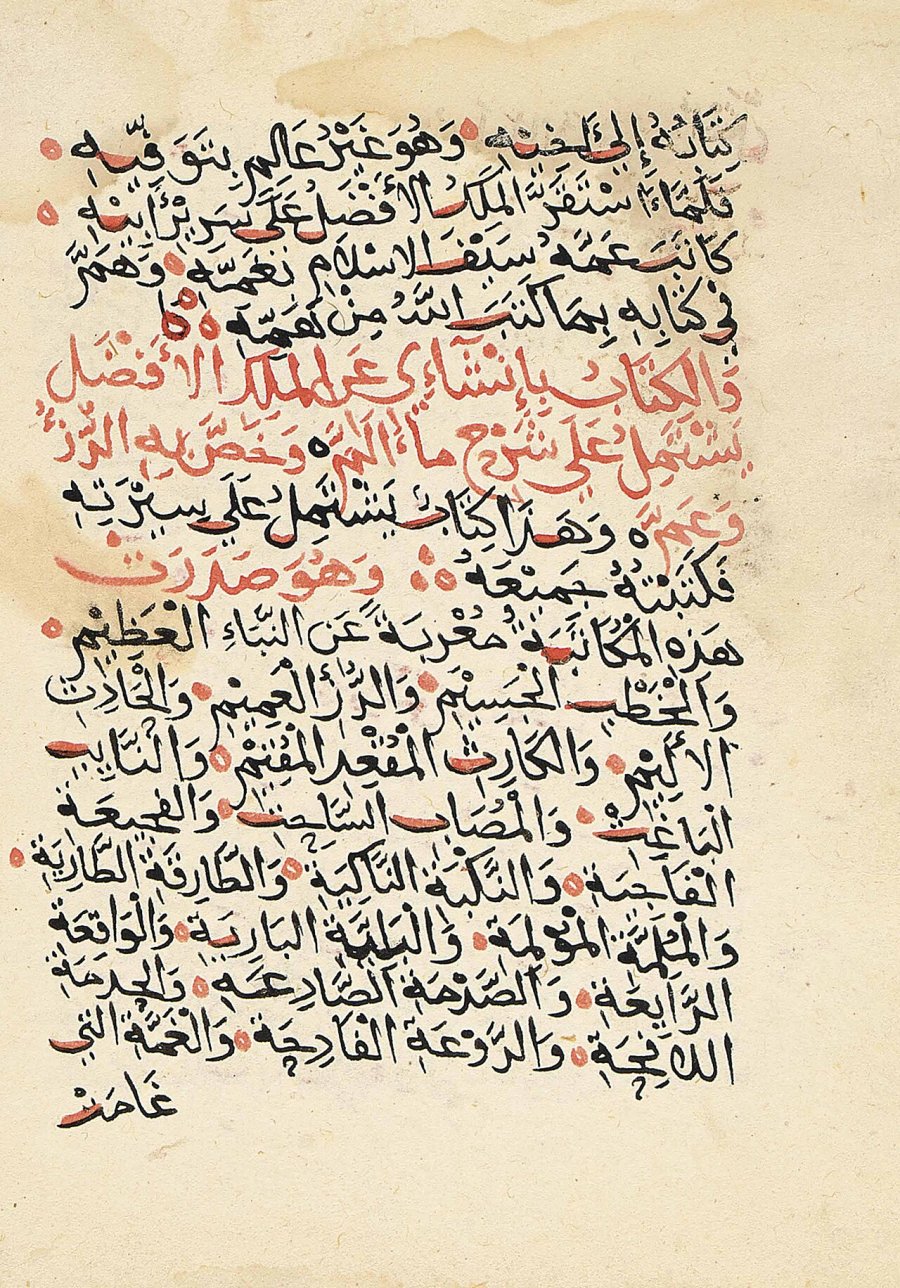 كِتَابُهُ إِلَى أَخِيْهِ وَهُوَ غَيْرُ عَالِمٍ بِتَوَفِّيْهِ
فَلَمَّا اسْتَقَرَّ المَلِكُ الأَفْضَلُ عَلَى سَرِيْرِ أَبِيْهِ
كَاتَبَ عَمَّهُ سَيْفَ الاسْلَامِ بِغَمِّهِ وَهَمَّ
فِي كِتَابِهِ بِمَا كَتَبَ اللَّهُ مِنْ هَمِّهِ
وَالكِتَابُ بِإِنْشَآءِى عَنِ المَلِكِ الأَفْضَلِ
يَشْتَمِلُ عَلَى شَرْحِ مَا أَلَمَّ وَخَصَّ بِهِ الرُّزْءُ
وَعَمَّ وَهَذَا كِتَابٌ يَشْتَمِلُ عَلَى سِيْرَتِهِ
فَكَتَبْتُهُ جَمِيْعَهُ وَهُوَ صَدَرَتْ
هَذِهِ المُكَاتَبَةُ مُعْرِبَةً عَنِ النَّبَاءِ العَظِيْمِ
وَالْخَطْبِ الجَسِيْمِ وَالرُّزْءِ العَمِيْمِ وَالْحَادِثِ
الأَلِيْمِ وَالكَارِثِ المُقْعِدِ المُقِيْمِ وَالنَّايِبِ
البَاغِتِ وَالْمُصَابِ السَّاحِتِ وَالفَجِيعَةِ
الفَاجِيَةِ وَالنَّكْبَةِ النَّاكِيَةِ وَالطَّارِقَةِ الطَّارِيَةِ
وَالْمُلِمَّةِ المُؤْلِمَةِ وَالْبَلِيَّةِ البَارِيَةِ وَالْوَاقِعَةِ
الرَّايِعَةِ وَالصَّدْمَةِ الصَّادِعَةِ وَالحِدمَةِ
اللافِحَةِ وَالرَّوْعَةِ الفَادِحَةِ وَالْغُمَّةِ الَّتِي
غَامَتْ